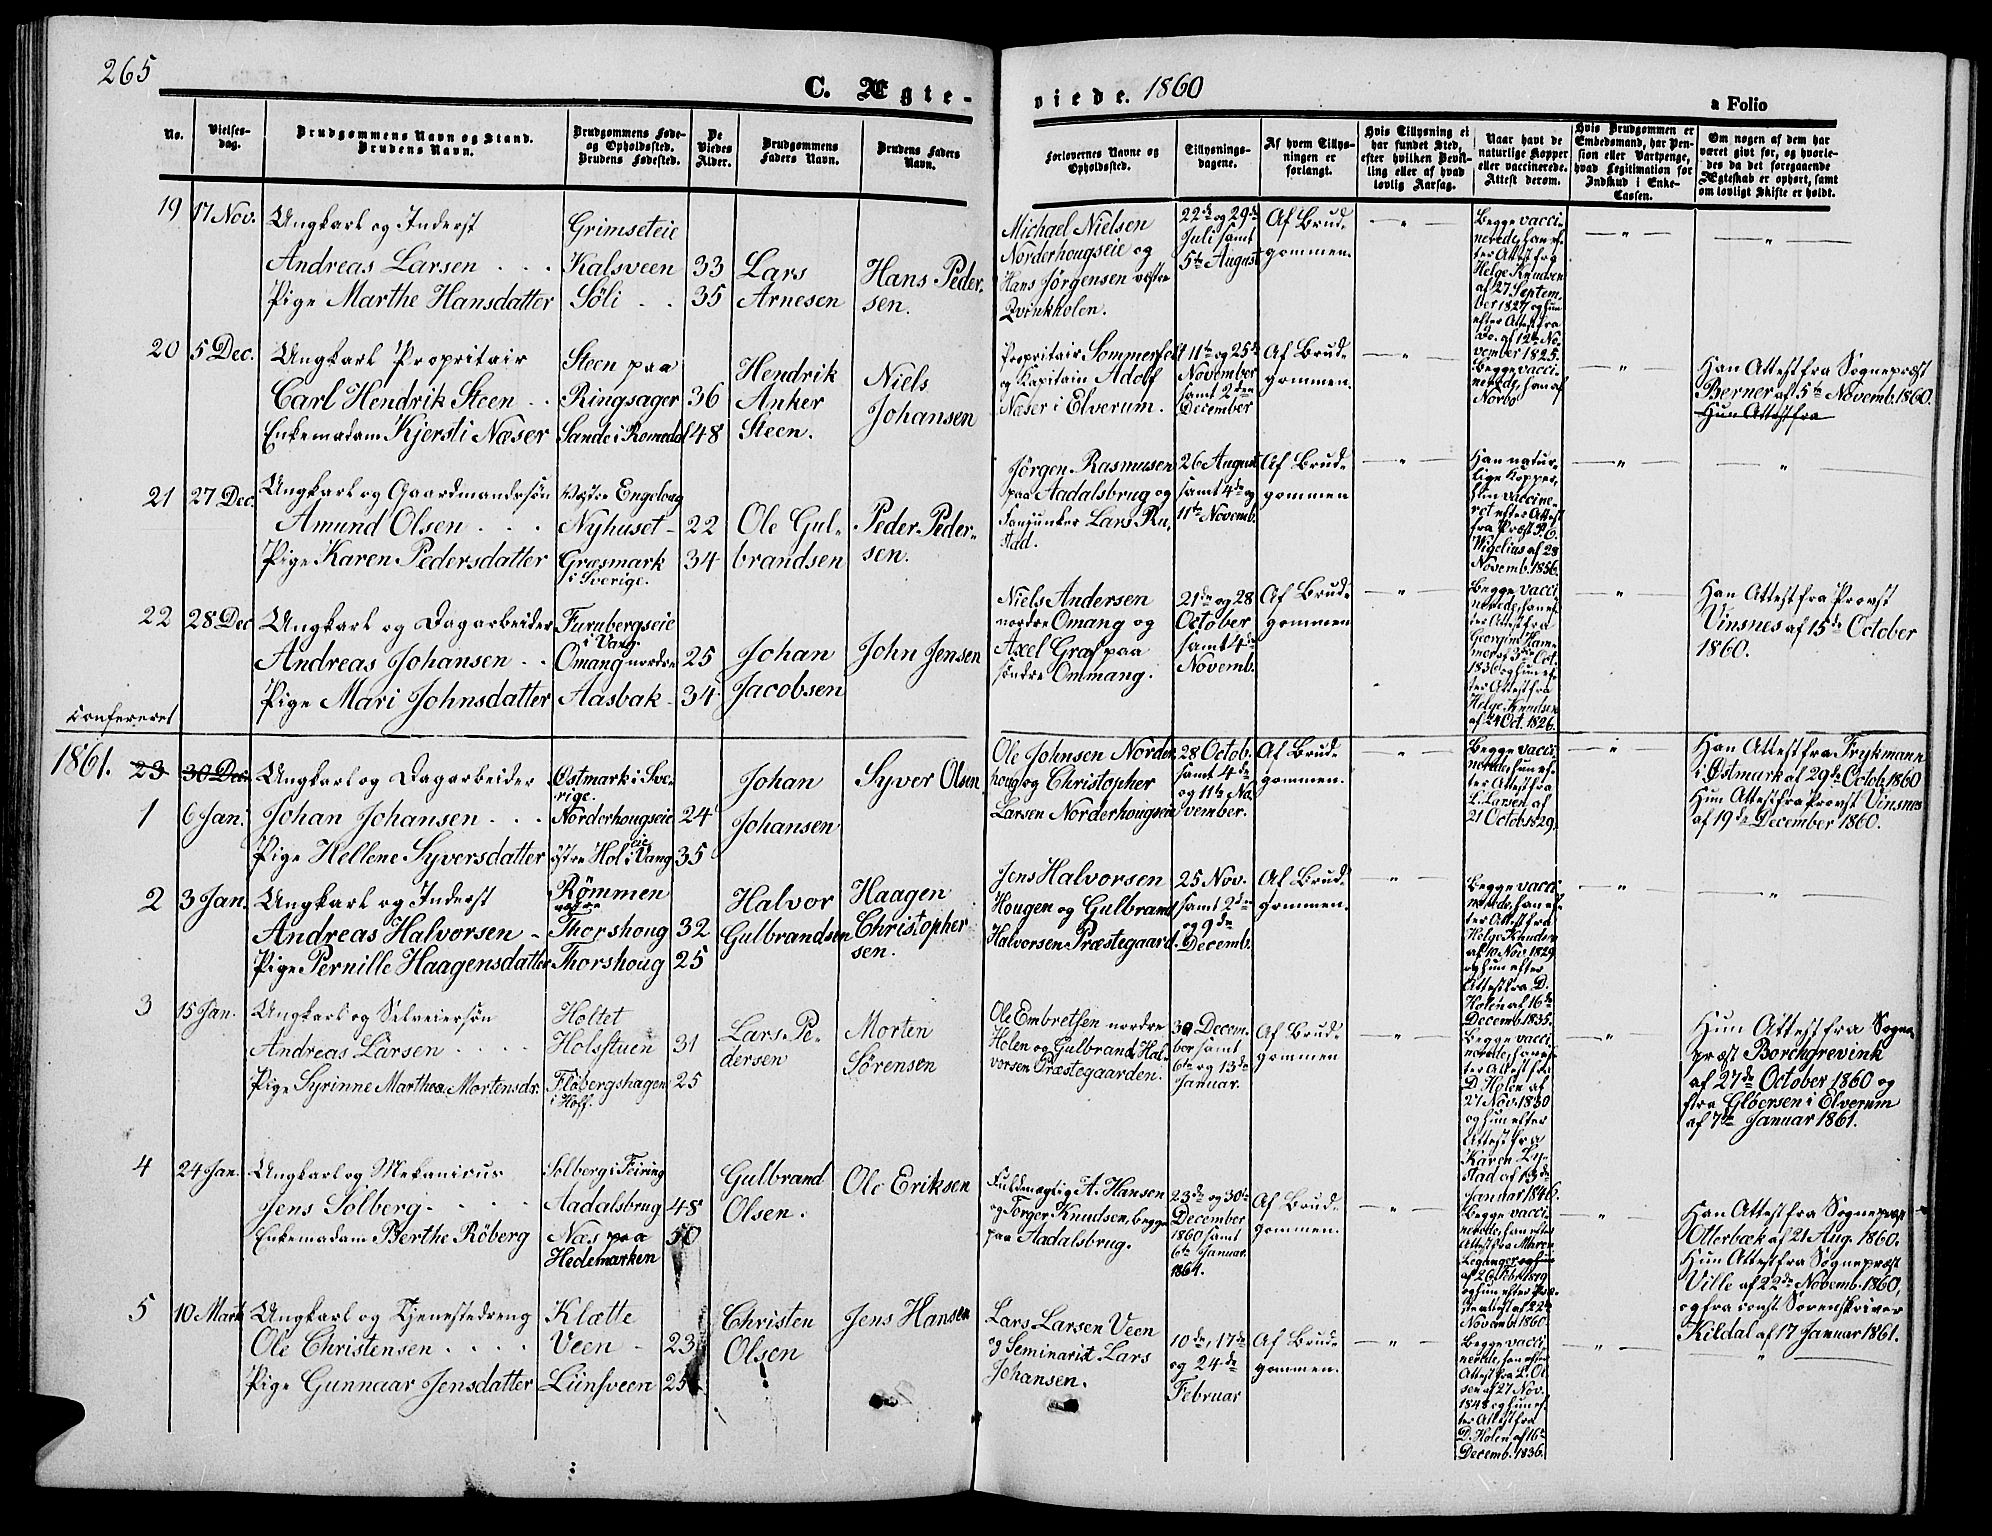 265
C. Ægte-
viede. 1860
a Folio
No.
Vielses-
dag.
Brudgommens Navn og Stand.
Brudens Navn.
Brudgommens Føde-
og Opholdssted.
Brudens Fødested.
De
Viedes
Alder.
Brudgommens
Faders Navn.
Brudens Faders
Navn.
Forlovernes Navne og
Opholdssted.
Tillysnings-
dagene.
Af hvem Tillys-
ningen er
forlangt.
Hvis Tillysning ei
har fundet Sted,
efter hvilken Bevil-
ling eller af hvad
lovlig Aarsag.
Naar havt de
naturlige Kopper
eller vaccinerede.
Attest derom.
Hvis Brudgommen er
Embedsmand, har Pen-
sion eller Vartpenge,
hvad Legitimation for
Indskud i Enke-
Cassen.
Om nogen af dem har
været gift før, og hvorle-
des da det foregaaende
Ægteskab er ophørt, samt
om lovligt Skifte er holdt.
19 17 Nov.
Ungkarl og Inderst
Andreas Larsen
Pige Marthe Hansdatter
Grimseteie
Kalsveen
Søli
33
35
Lars
Arnesen
Hans Peder-
sen.
Michael Nielsen
Norderhougseie og
Hans Jørgensen vestre
Qvinkholen.
22de og 29de
Juli samt
5te August
Af Brud-
gommen.
Begge vacci-
nerede, han ef-
ter Attest fra
Helge Knudsen
af 27 Septem-
ber 1827 og hun
efter Attest fra
do. af 12te No-
vember 1825.
20 5 Dec.
Ungkarl Propritair
Carl Hendrik Steen
Enkemadam Kjersti Næser
Steen paa
Ringsager
Sande i Romedal
36
48
Hendrik
Anker
Steen.
Niels
Johansen
Propritair Sommerfelt
og Kapitain Adolf
Næser i Elverum.
11te og 25de
November
samt 2den
December
Af Brud-
gommen.
Begge vacci-
nerede, han af
Norbo
Han Attest fra Sognepræst
Berner af 5te Novemb. 1860.
Hun Attest fra
21 27 Dec.
Ungkarl og Gaardmandssøn
Amund Olsen
Pige Karen Pedersdatter
Vestre Engelaug
Nyhuset
Græsmark
i Sverige.
22
34
Ole Gul-
brandsen
Peder Peder-
sen.
Jørgen Rasmusen
paa Aadalsbrug og
Fanjunker Lars Ru-
stad.
26 August
samt 4de og
11te Novemb.
Af Brud-
gommen
Han natur-
lige Kopper,
hun vaccine-
ret efter Attest
fra Præst P. C.
Wigelius af 28
Novemb. 1856.
22 28 Dec
Ungkarl og Dagarbeider
Andreas Johansen
Pige Mari Johnsdatter
Furubergseie
i Vang.
Omang nordre
Aasbak
25
34
Johan
Jacobsen
John Jensen
Niels Andersen
nordre Omang og
Axel Graf paa
søndre Ommang.
21de og 28
October
samt 4de
Novemb.
Af Brud-
gommen
Begge vacci-
nerede, han ef-
ter Attest fra
Georgine Ham-
mer af 3die Oct.
1836 og hun ef-
ter Attest fra
Helge Knudsen
af 24 Oct. 1826.
Han Attest fra Provst
Vinsnes af 15de October
1860.
Confereret
1861.
23 30 Dec.
1 6 Jan.
Ungkarl og Dagarbeider
Johan Johansen
Pige Hellene Syversdatter
Østmark i Sve-
rige.
Norderhougseie
østre Hol eie i Vang
24
35
Johan
Johansen
Syver Olsen
Ole Johnsen Norder-
houg og Christopher
Larsen Norderhougseie
28 Octob.
samt 4de
og 11te No-
vember.
Af Brud-
gommen.
Begge vacci-
nerede, hun ef-
ter Attest fra
L. Larsen af
21 Octob. 1829.
Han Attest fra Frykmann
i Østmark af 29de Octob. 1860
Hun Attest fra Provst Vinsnes
af 19de December 1860.
2 3 Jan.
Ungkarl og Inderst
Andreas Halvorsen
Pige Pernille Haagensdatter
Rømmen
vestre
Thorshoug
Thorshoug
32
25
Halvor
Gulbrandsen
Haagen
Christopher-
sen.
Jens Halvorsen
Hougen og Gulbrand
Halvorsen Præstegaard.
25 Nov.
samt 2den
og 9de
Decemb.
Af Brud-
gommen.
Begge vacci-
nerede, han ef-
ter Attest fra
Helge Knudsen
af 10 Nov. 1829
og hun efter
Attest fra D.
Holen af 16de
Decemb. 1835.
3 15 Jan.
Ungkarl og Selveiersøn
Andreas Larsen
Pige Syrinne Marthea Mortensdr.
Holtet
Holsstuen
Flobergshagen
i Hoff.
31
25
Lars Pe-
dersen
Morten
Sørensen
Ole Embretsen nordre
Holen og Gulbrand Hal-
vorsen Præstegaarden.
30 Decem-
ber samt
6te og 13de
Januar.
Af Brud-
gommen
Begge vacci-
nerede, han ef-
ter Attest fra
D. Holen af
27 Nov. 1830
og hun efter
Attest fra
Karen Ly-
stad af 13de
Januar 1846.
Hun Attest fra Sogne-
præst Borchgrevink
af 27de October 1860 og
fra Gløersen i Elverum
af 7de Januar 1861.
4 24 Jan.
Ungkarl og Mekanicus
Jens Solberg
Enkemadam Berthe Røberg
Solberg i Feiring
Aadalsbrug
Næs paa
Hedemarken
48
50
Gulbrand
Olsen.
Ole Eriksen
Fuldmægtig A. Hansen
og Torger Knudsen, begge
paa Aadalsbrug.
23de og 30te
December
1860 samt
6te Januar
1861.
Af Brud-
gommen.
Begge vacci-
nerede, han efter
Attest fra Maren
Leganger og hun
af 26 Feb. 1819
og hun efter Præ-
steattest af 22de
Novemb. 1860.
Han Attest fra Sognepræst
Otterbæk af 21 Aug. 1860.
Hun Attest fra Sognepræst
Ville af 22de Novemb. 1860,
og fra const. Sorenskriver
Kildal af 17 Januar 1861.
5 10 Marts
Ungkarl og Tjenestedreng
Ole Christensen
Pige Gunnaar Jensdatter
Klætte
Veen
Liinsveen
23
25
Christen
Olsen
Jens Hansen
Lars Larsen Veen
og Seminarist Lars
Johansen.
10de, 17de
og 24de
Februar
Af Brud-
gommen.
Begge vacci-
nerede, han efter
Attest fra L. Ol-
sen af 27 Nov.
1848 og hun ef-
ter Attest fra
D. Holen af 16de
Decemb. 1836.